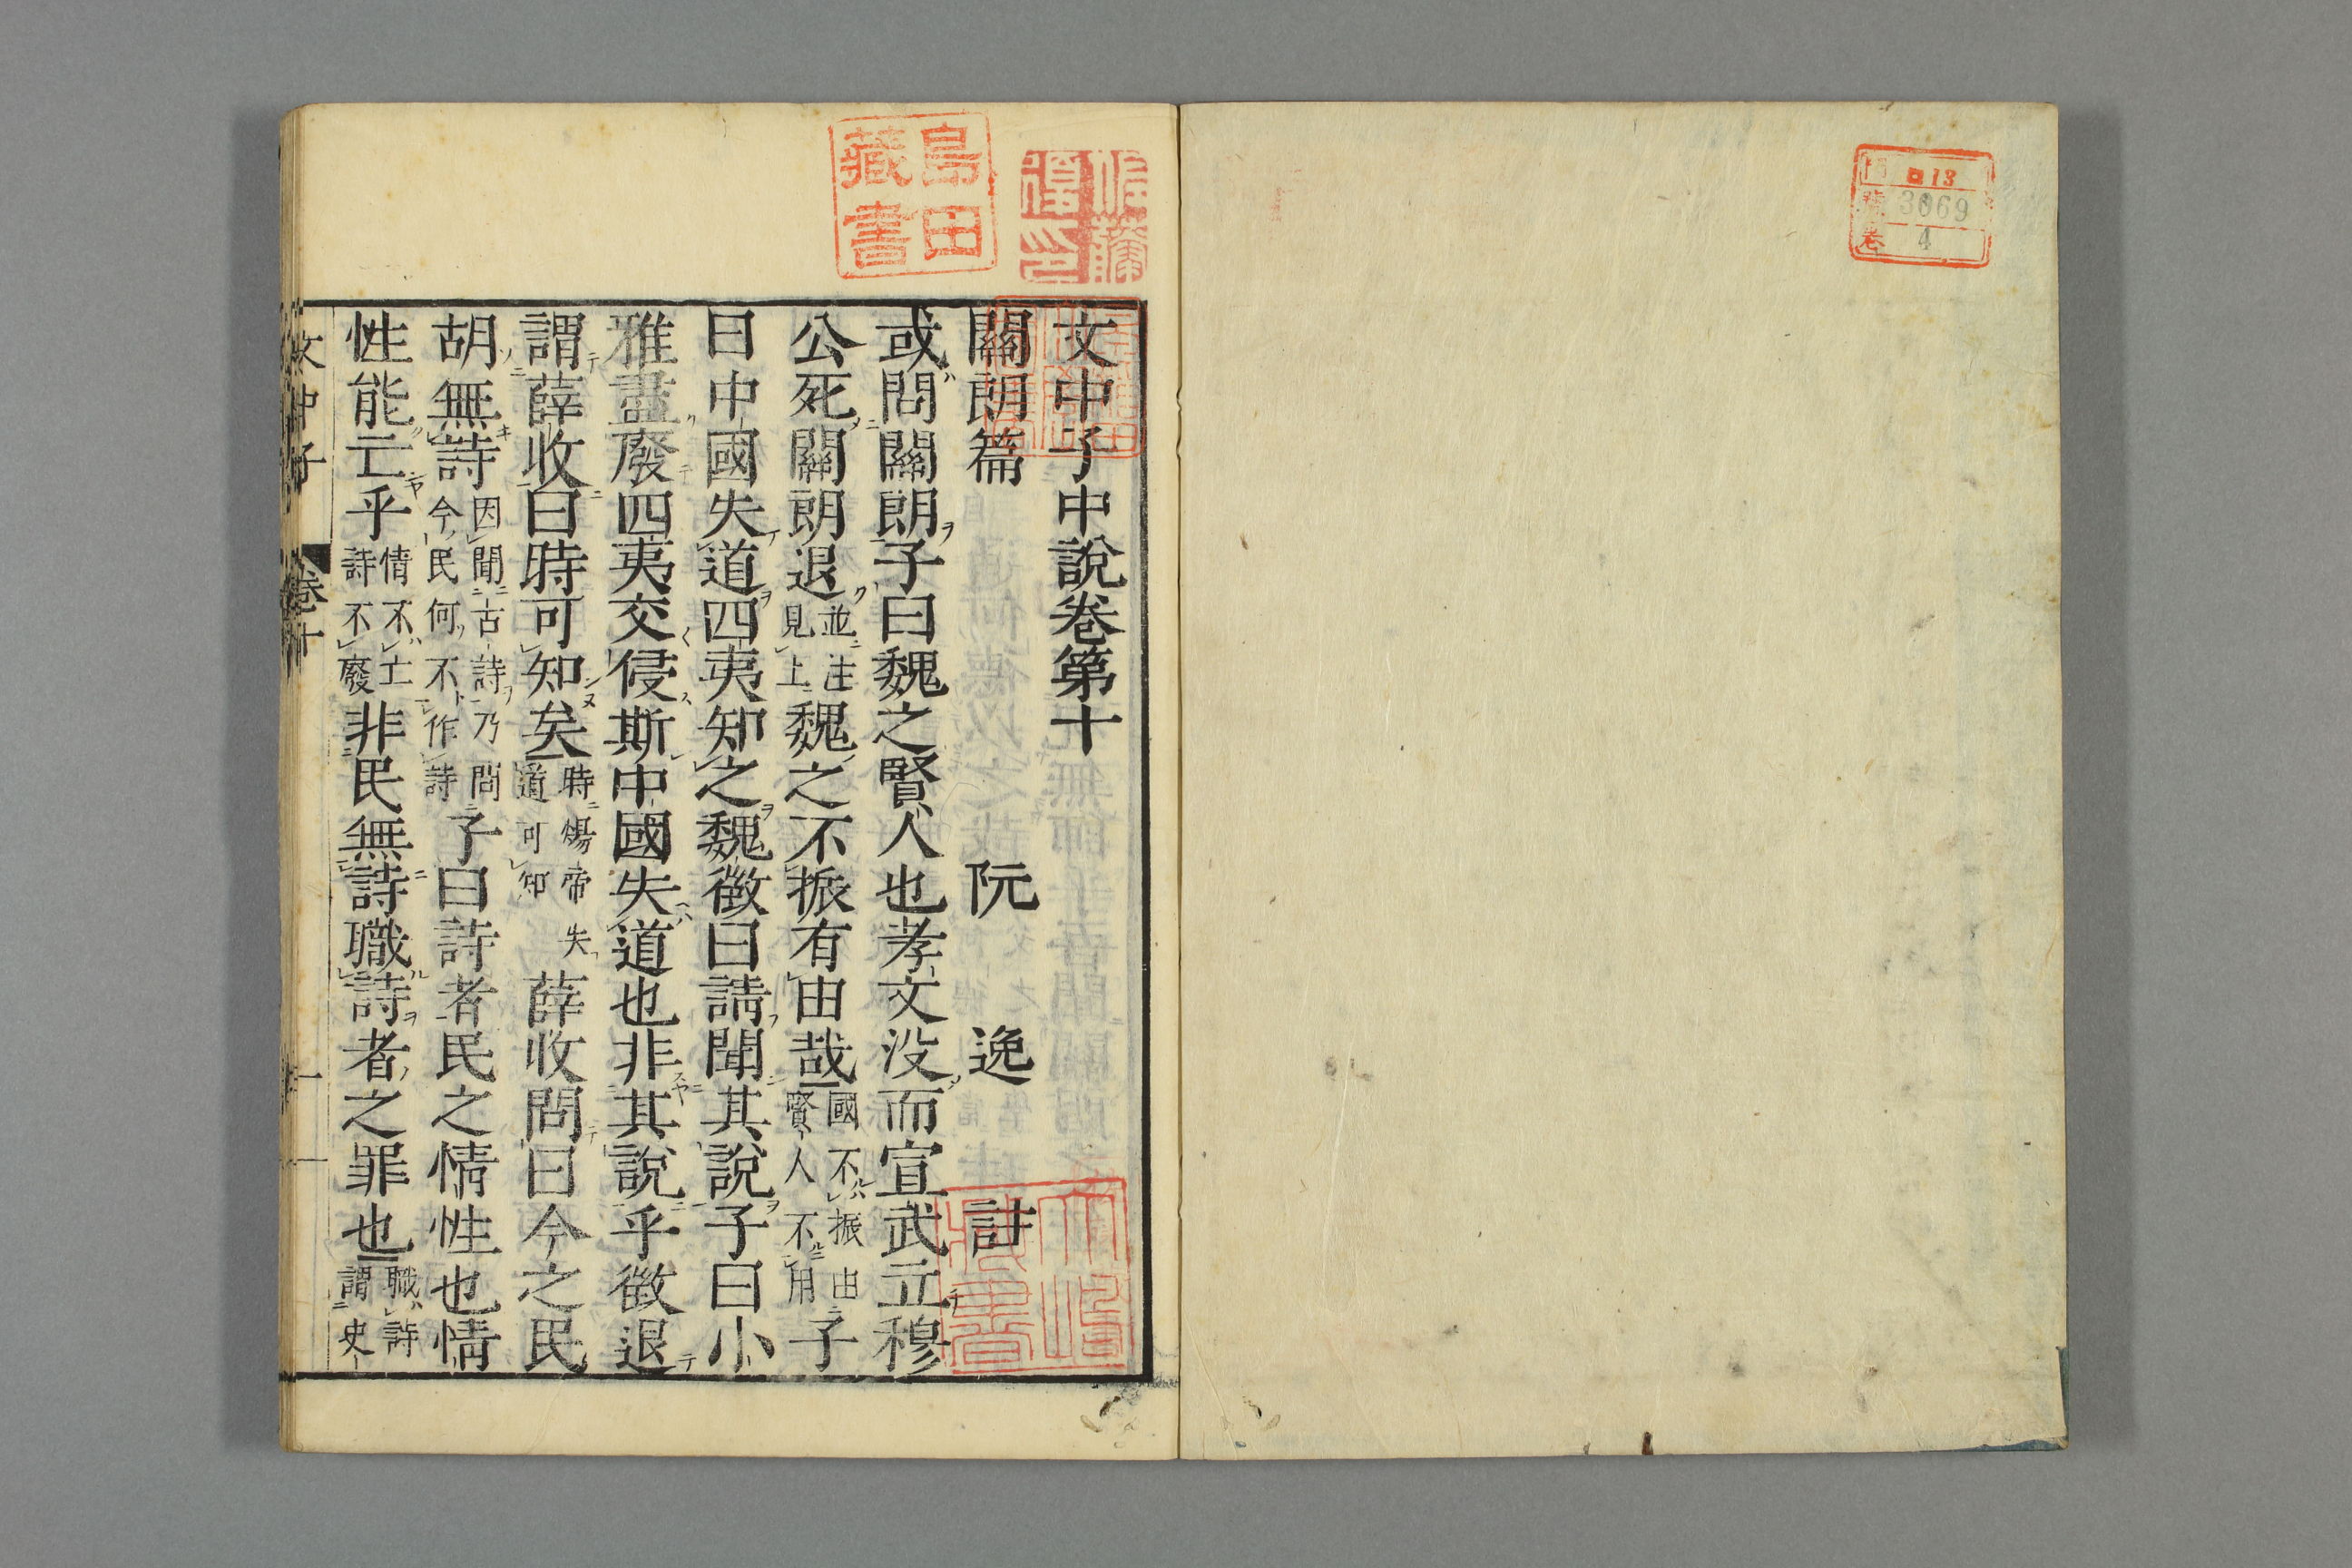 文中子中說卷第十
關朗篇 阮 逸 註
或問關朗子曰魏之賢人也孝文没而宣武立穆
公死關朗退並註見上魏之不振有由哉國不振由賢人不用子
曰中國失道四夷知之魏徵曰請聞其說子曰小
雅盡廢四夷交侵斯中國失道也非其說乎徵退
謂薛收曰時可知矣時煬帝失道可知薛收問曰今之民
胡無詩因聞古詩乃問今民何不作詩子曰詩者民之情性也情
性能亡乎情不亡詩不廢非民無詩職詩者之罪也職詩謂史
文中子 卷十 一
島田藏書
13
3069
4